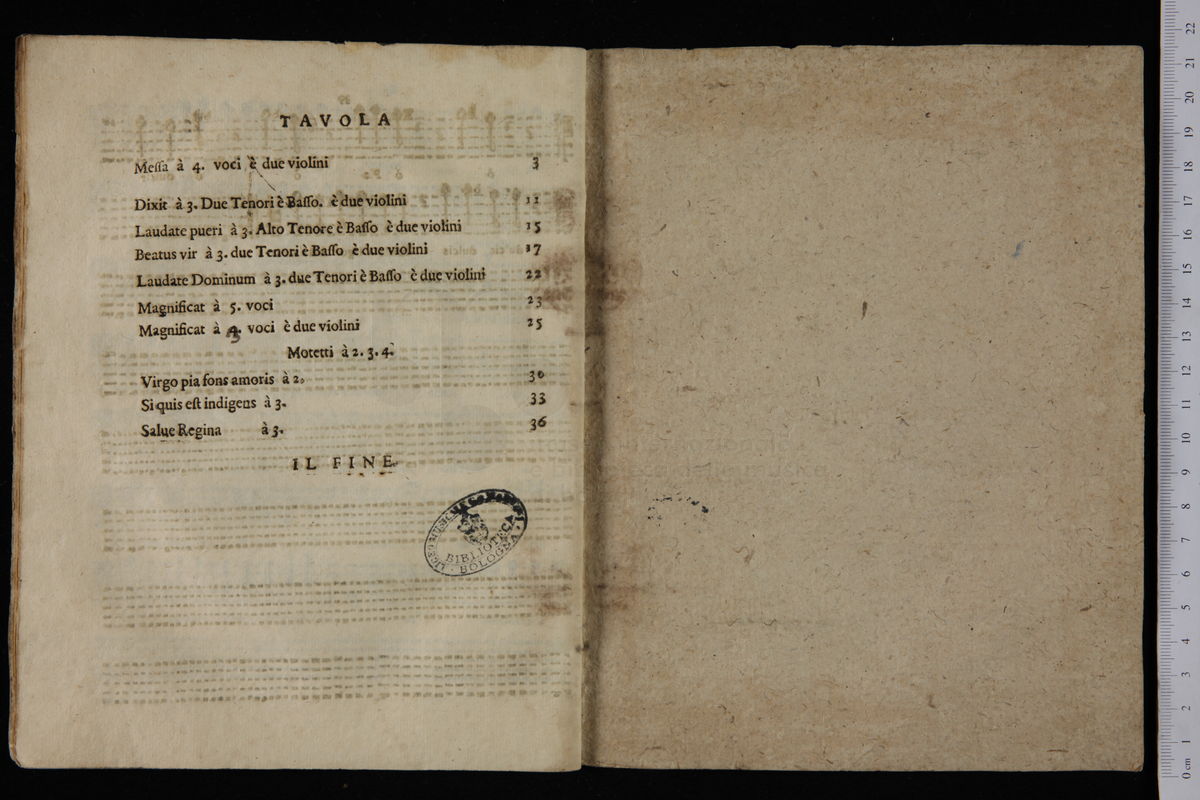 TAVOLA
Meſſa à 4. voci è due violini 3
Dixit à 3. Due Tenori è Baſſo. è due violini 11
Laudate pueri à 3. Alto Tenore è Baſſo è due violini 15
Beatus vir à 3. due Tenori è Baſſo è due violini 17
Laudate Dominum à 3. due Tenori è Baſſo è due violini 22
Magnificat à 5. voci 23
Magnificat à voci è due violini 25
Motetti à 2. 3. 4.
Virgo pia fons amoris à 2. 30
Si quis eſt indigens à 3. 33
Salue Regina à 3. 36
IL FINE.
LICEO MUSICALE
BIBLIOTECA
BOLOGNA
22
21
20
19
18
17
16
15
14
13
12
11
10
9
8
7
6
5
4
3
2
1
0 cm